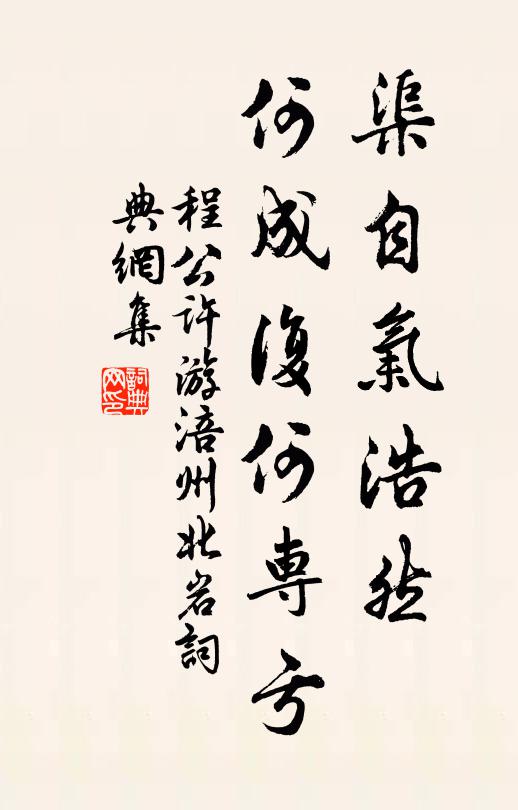 渠自氣浩然
何成復何専亏
程公許游涪州北岩詞
典網集
詞典網印